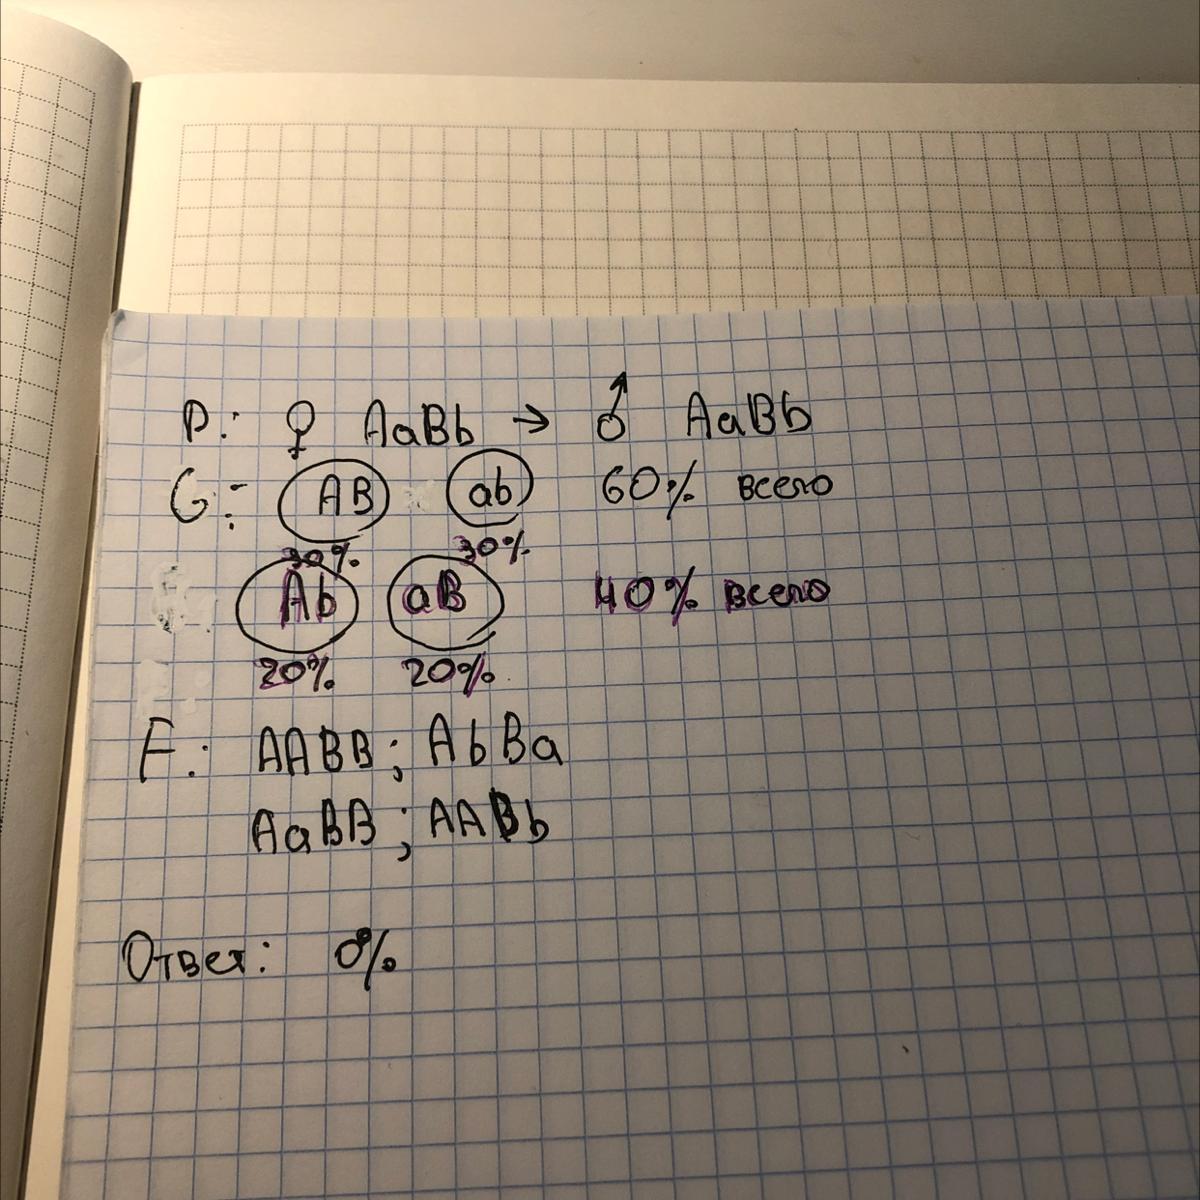 P: ♀ AaBb → ♂ AaBb
G: AB ab 60% всего
30% 30%
Ab aB 40% всего
20% 20%
F: AABB; AbBa
AaBB; AABb
Ответ: 0%